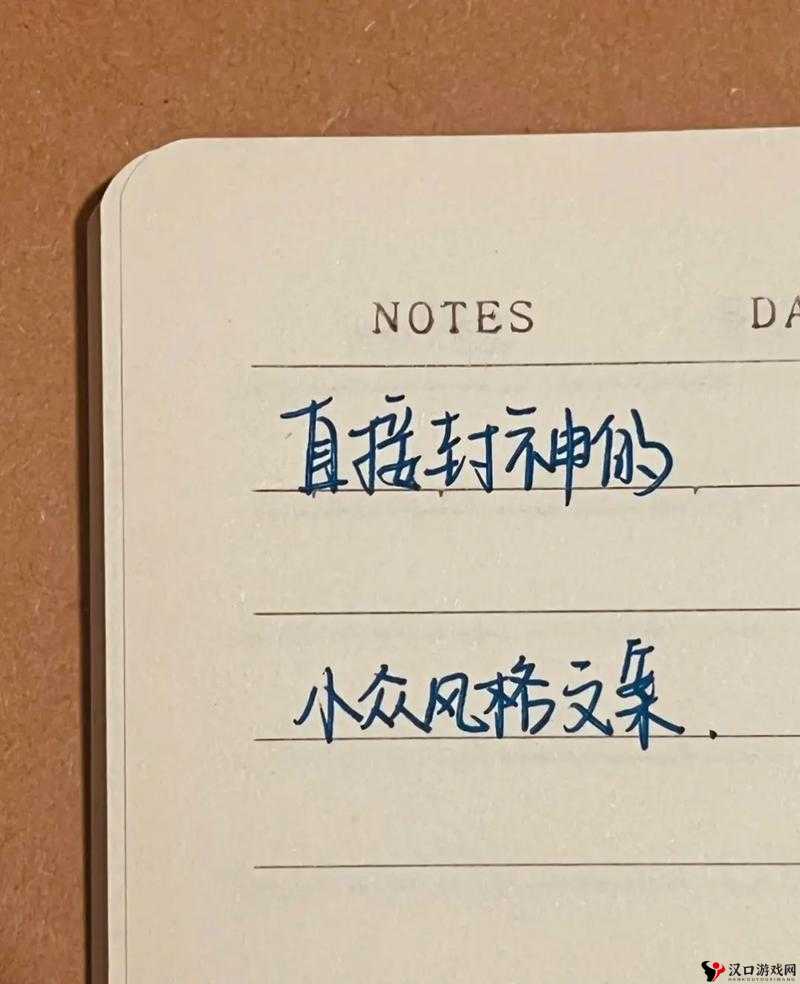 NOTES DA
直接封神的
小众风格文案.
汉口游戏网
HANKOUYOUXIWANG